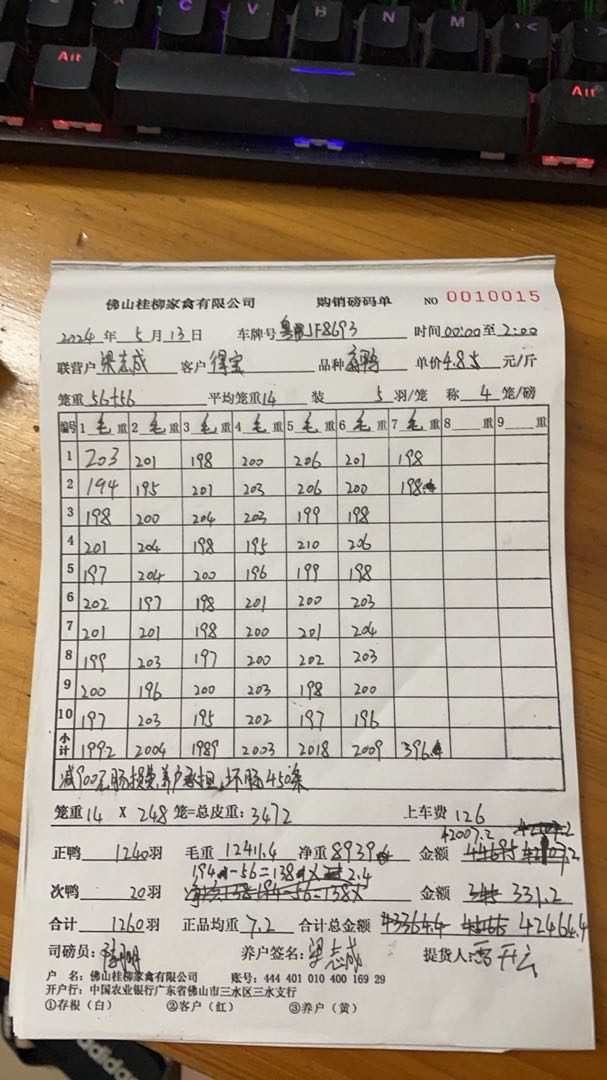 Alt
C
V
B
N
M
Alt
佛山桂柳家禽有限公司 购销磅码单 NO 0010015
2024 年 5 月 13 日 车牌号 粤 JF8693 时间 00:00 至 2:00
联营户 梁志成 客户 得宝 品种 鸭 单价 4.85 元/斤
笼重 56+56 平均笼重 14 装 5 羽/笼 称 4 笼/磅
编号 1 毛 重 2 毛 重 3 毛 重 4 毛 重 5 毛 重 6 毛 重 7 毛 重 8 重 9 重
1 203 201 198 200 206 201 198
2 194 195 201 203 206 200 198
3 198 200 204 203 199 198
4 201 204 198 195 210 206
5 197 204 200 196 199 198
6 202 197 198 201 200 203
7 201 201 198 200 201 204
8 199 203 197 200 202 203
9 200 196 200 203 198 200
10 197 203 195 202 197 196
小计 1992 2004 1989 2003 2018 2009 396
减900元肠损费,养户承担,坏肠450条
笼重 14 X 248 笼=总皮重: 3472 上车费 126
42007.2
正鸭 1240 羽 毛重 12411.4 净重 8939 金额
194-56=138 X 2.4
次鸭 20 羽 金额 331.2
合计 1260 羽 正品均重 7.2 合计总金额 42464.4
司磅员: 养户签名: 梁志成 提货人:
户 名: 佛山桂柳家禽有限公司 账号: 444 401 010 400 169 29
开户行: 中国农业银行广东省佛山市三水区三水支行
①存根(白) ②客户(红) ③养户(黄)
adidas